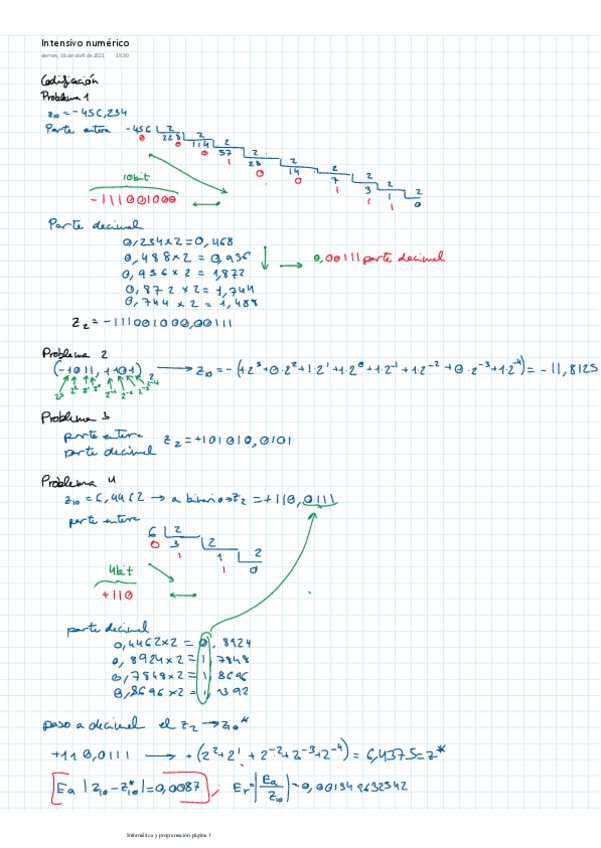 Intensivo numérico
viernes, 16 de abril de 2021 15:30
Codificación
Problema 1
Z10 = -456,234
Parte entera -456 2
0 228 2
0 114 2
0 57 2
1 28 2
0 14 2
0 7 2
1 3 2
1 1 2
1 0
10bit
-111001000
Parte decimal
0,234x2 = 0,468
0,488x2 = 0,936
0,936x2 = 1,872
0,872x2 = 1,744
0,744x2 = 1,488
0,00111 parte decimal
Z2 = -111001000,00111
Problema 2
(-1011,1101)2 → Z10 = -(1·2³+0·2²+1·2¹+1·2⁰+1·2⁻¹+1·2⁻²+0·2⁻³+1·2⁻⁴) = -11,8125
2³ 2² 2¹ 2⁰ 2⁻¹ 2⁻² 2⁻³ 2⁻⁴
Problema 3
parte entera
parte decimal
Z2 = +101010,0101
Problema 4
Z10 = 6,4462 → a binario → Z2 = +110,0111
parte entera
6 2
0 3 2
1 1 2
1 0
4bit
+110
parte decimal
0,4462x2 = 0,8924
0,8924x2 = 1,7848
0,7848x2 = 1,8696
0,8696x2 = 1,7392
paso a decimal el Z2 → Z10*
+110,0111 → +(2²+2¹+2⁻²+2⁻³+2⁻⁴) = 6,4375 = Z*
Ea |Z10 - Z10*| = 0,0087 ; Er = |Ea/Z10| = 0,001349632342
Informática y programación página 1